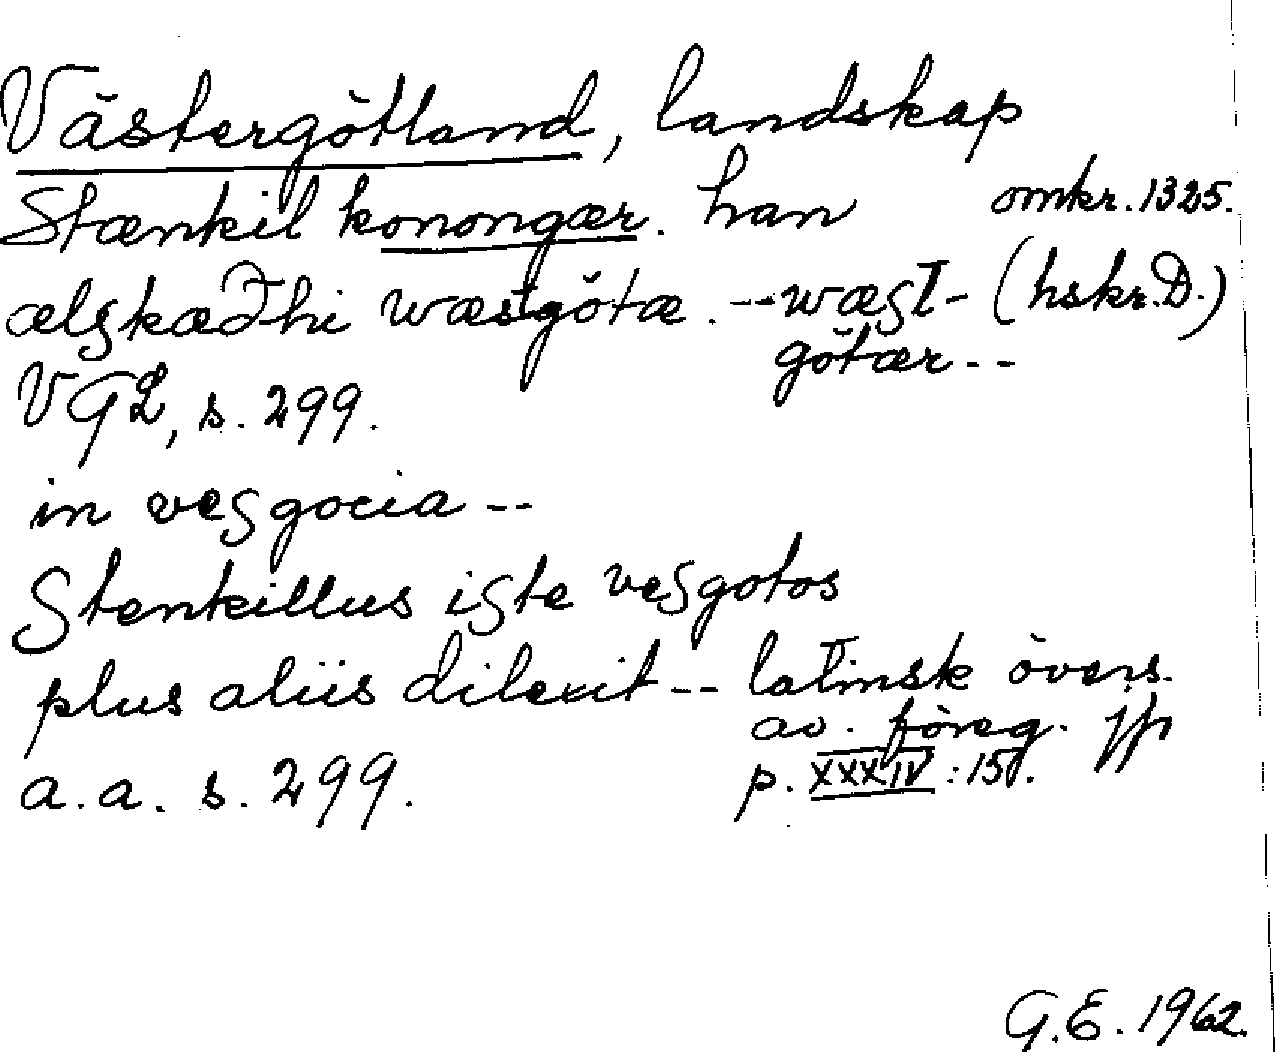 Västergötland, landskap
Stænkil konongær. han omkr. 1325.
ælskædhi wæstgötæ. -- wæst- (hskr. D.)
götær --
VGL, s. 299.
in vesgocia --
Stenkillus iste vesgotos
plus aliis dilexit -- latinsk övers.
av föreg. jfr
a.a. s. 299. p. XXXIV: 15.
G.E. 1962.